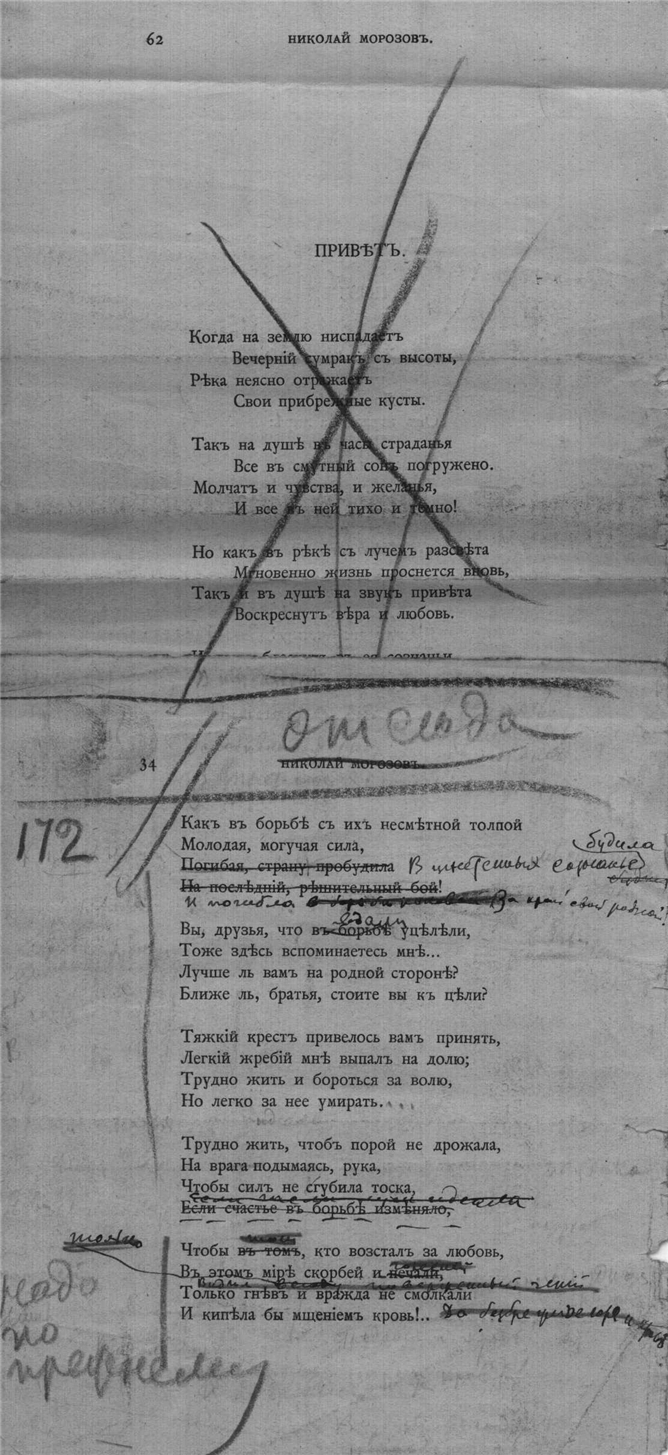 62 НИКОЛАЙ МОРОЗОВЪ.
ПРИВѢТЪ.
Когда на землю ниспадаетъ
Вечерній сумракъ съ высоты,
Рѣка неясно отражаетъ
Свои прибрежные кусты.
Такъ на душѣ въ часы страданья
Все въ смутный сонъ погружено.
Молчатъ и чувства, и желанья,
И все въ ней тихо и темно!
Но какъ въ рѣкѣ съ лучемъ разсвѣта
Мгновенно жизнь проснется вновь,
Такъ и въ душѣ на звукъ привѣта
Воскреснутъ вѣра и любовь.
отсюда
34 НИКОЛАЙ МОРОЗОВЪ.
172
Какъ въ борьбѣ съ ихъ несмѣтной толпой
Молодая, могучая сила,
будила
Погибая, страну пробудила В
На послѣдній, рѣшительный бой!
И погибла За край свой родной!
Вы, друзья, что въ борьбѣ уцѣлѣли,
Тоже здѣсь вспоминаетесь мнѣ...
Лучше ль вамъ на родной сторонѣ?
Ближе ль, братья, стоите вы къ цѣли?
Тяжкій крестъ привелось вамъ принять,
Легкій жребій мнѣ выпалъ на долю;
Трудно жить и бороться за волю,
Но легко за нее умирать....
Трудно жить, чтобъ порой не дрожала,
На врага подымаясь, рука,
Чтобы силъ не сгубила тоска,
Если счастье въ борьбѣ измѣняло,
Чтобы въ томъ, кто возсталъ за любовь,
Въ этомъ мірѣ скорбей и печали,
Только гнѣвъ и вражда не смолкали
И кипѣла бы мщеніемъ кровь!..
надо
по
прежнему